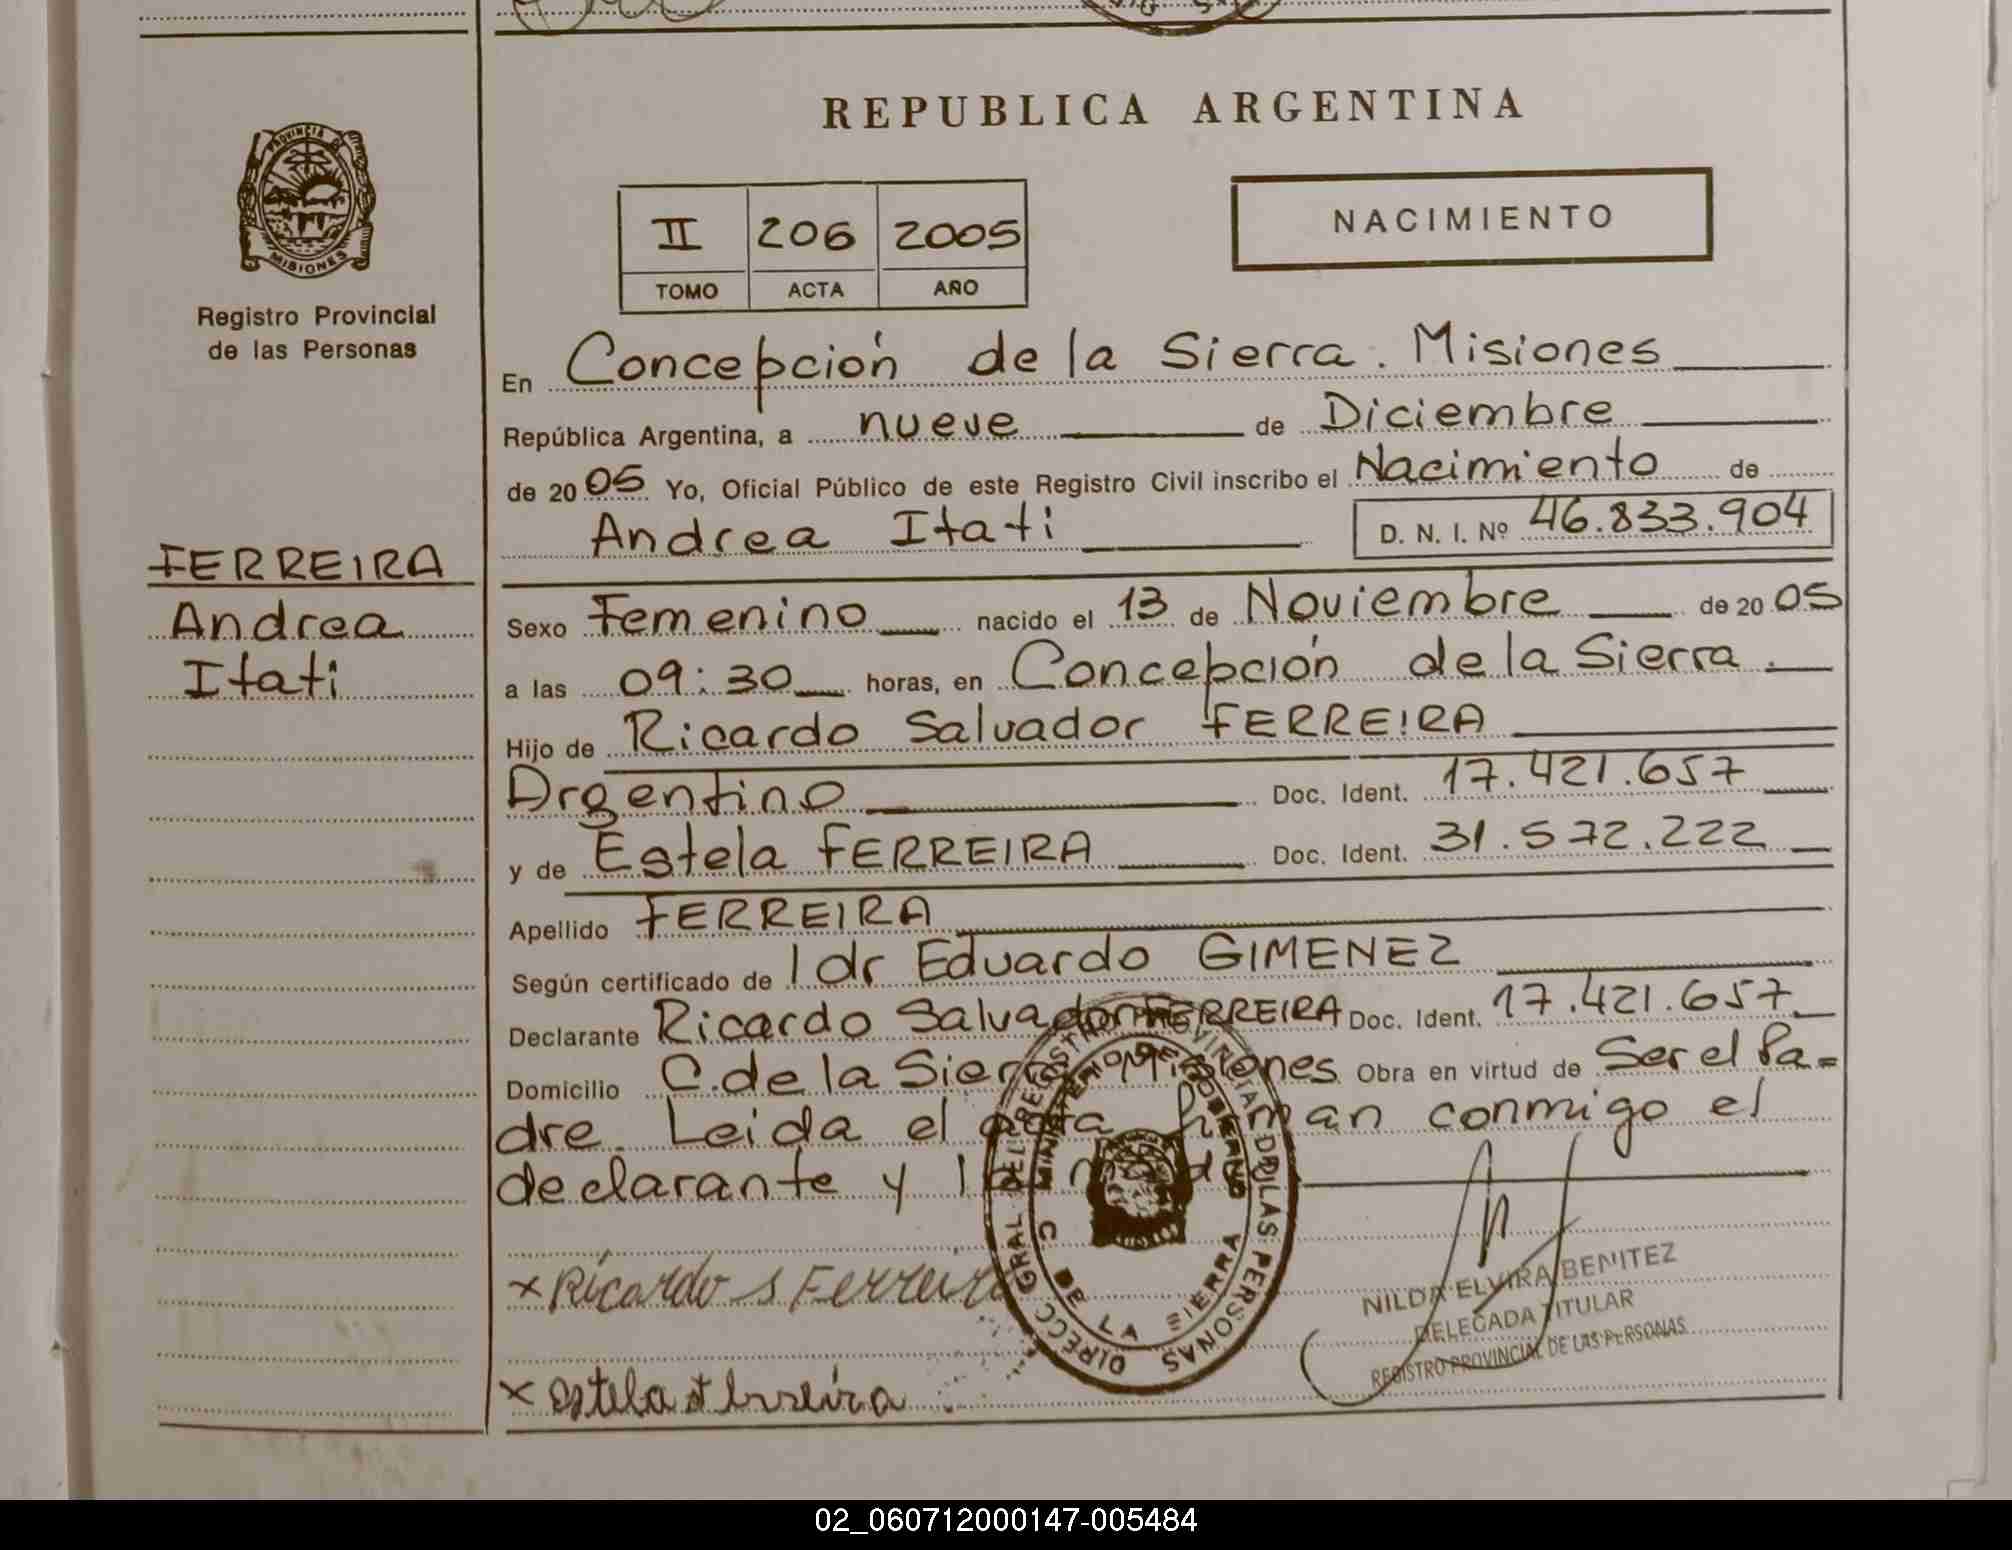 REPUBLICA ARGENTINA
PROVINCIA DE
MISIONES
Registro Provincial
de las Personas
II 206 2005
TOMO ACTA AÑO
NACIMIENTO
FERREIRA
Andrea
Itati
En Concepción de la Sierra. Misiones
República Argentina, a nueve de Diciembre
de 2005 Yo, Oficial Público de este Registro Civil inscribo el Nacimiento de
Andrea Itati D. N. I. Nº 46.833.904
Sexo Femenino nacido el 13 de Noviembre de 2005
a las 09:30 horas, en Concepción de la Sierra.
Hijo de Ricardo Salvador FERREIRA
Argentino Doc. Ident. 17.421.657
y de Estela FERREIRA Doc. Ident. 31.572.222
Apellido FERREIRA
Según certificado de l dr Eduardo GIMENEZ
Declarante Ricardo Salvador FERREIRA Doc. Ident. 17.421.657
Domicilio C. de la Sierra Misiones Obra en virtud de Ser el Pa=
dre. Leida el acta firman conmigo el
declarante y la madre
DIRECC GRAL DEL REGISTRO PROVINCIAL DE LAS PERSONAS
MINISTERIO DE GOBIERNO
C DE LA SIERRA
x Ricardo S Ferreira
x estela ferreira
NILDA ELVIRA BENITEZ
DELEGADA TITULAR
REGISTRO PROVINCIAL DE LAS PERSONAS
02_060712000147-005484